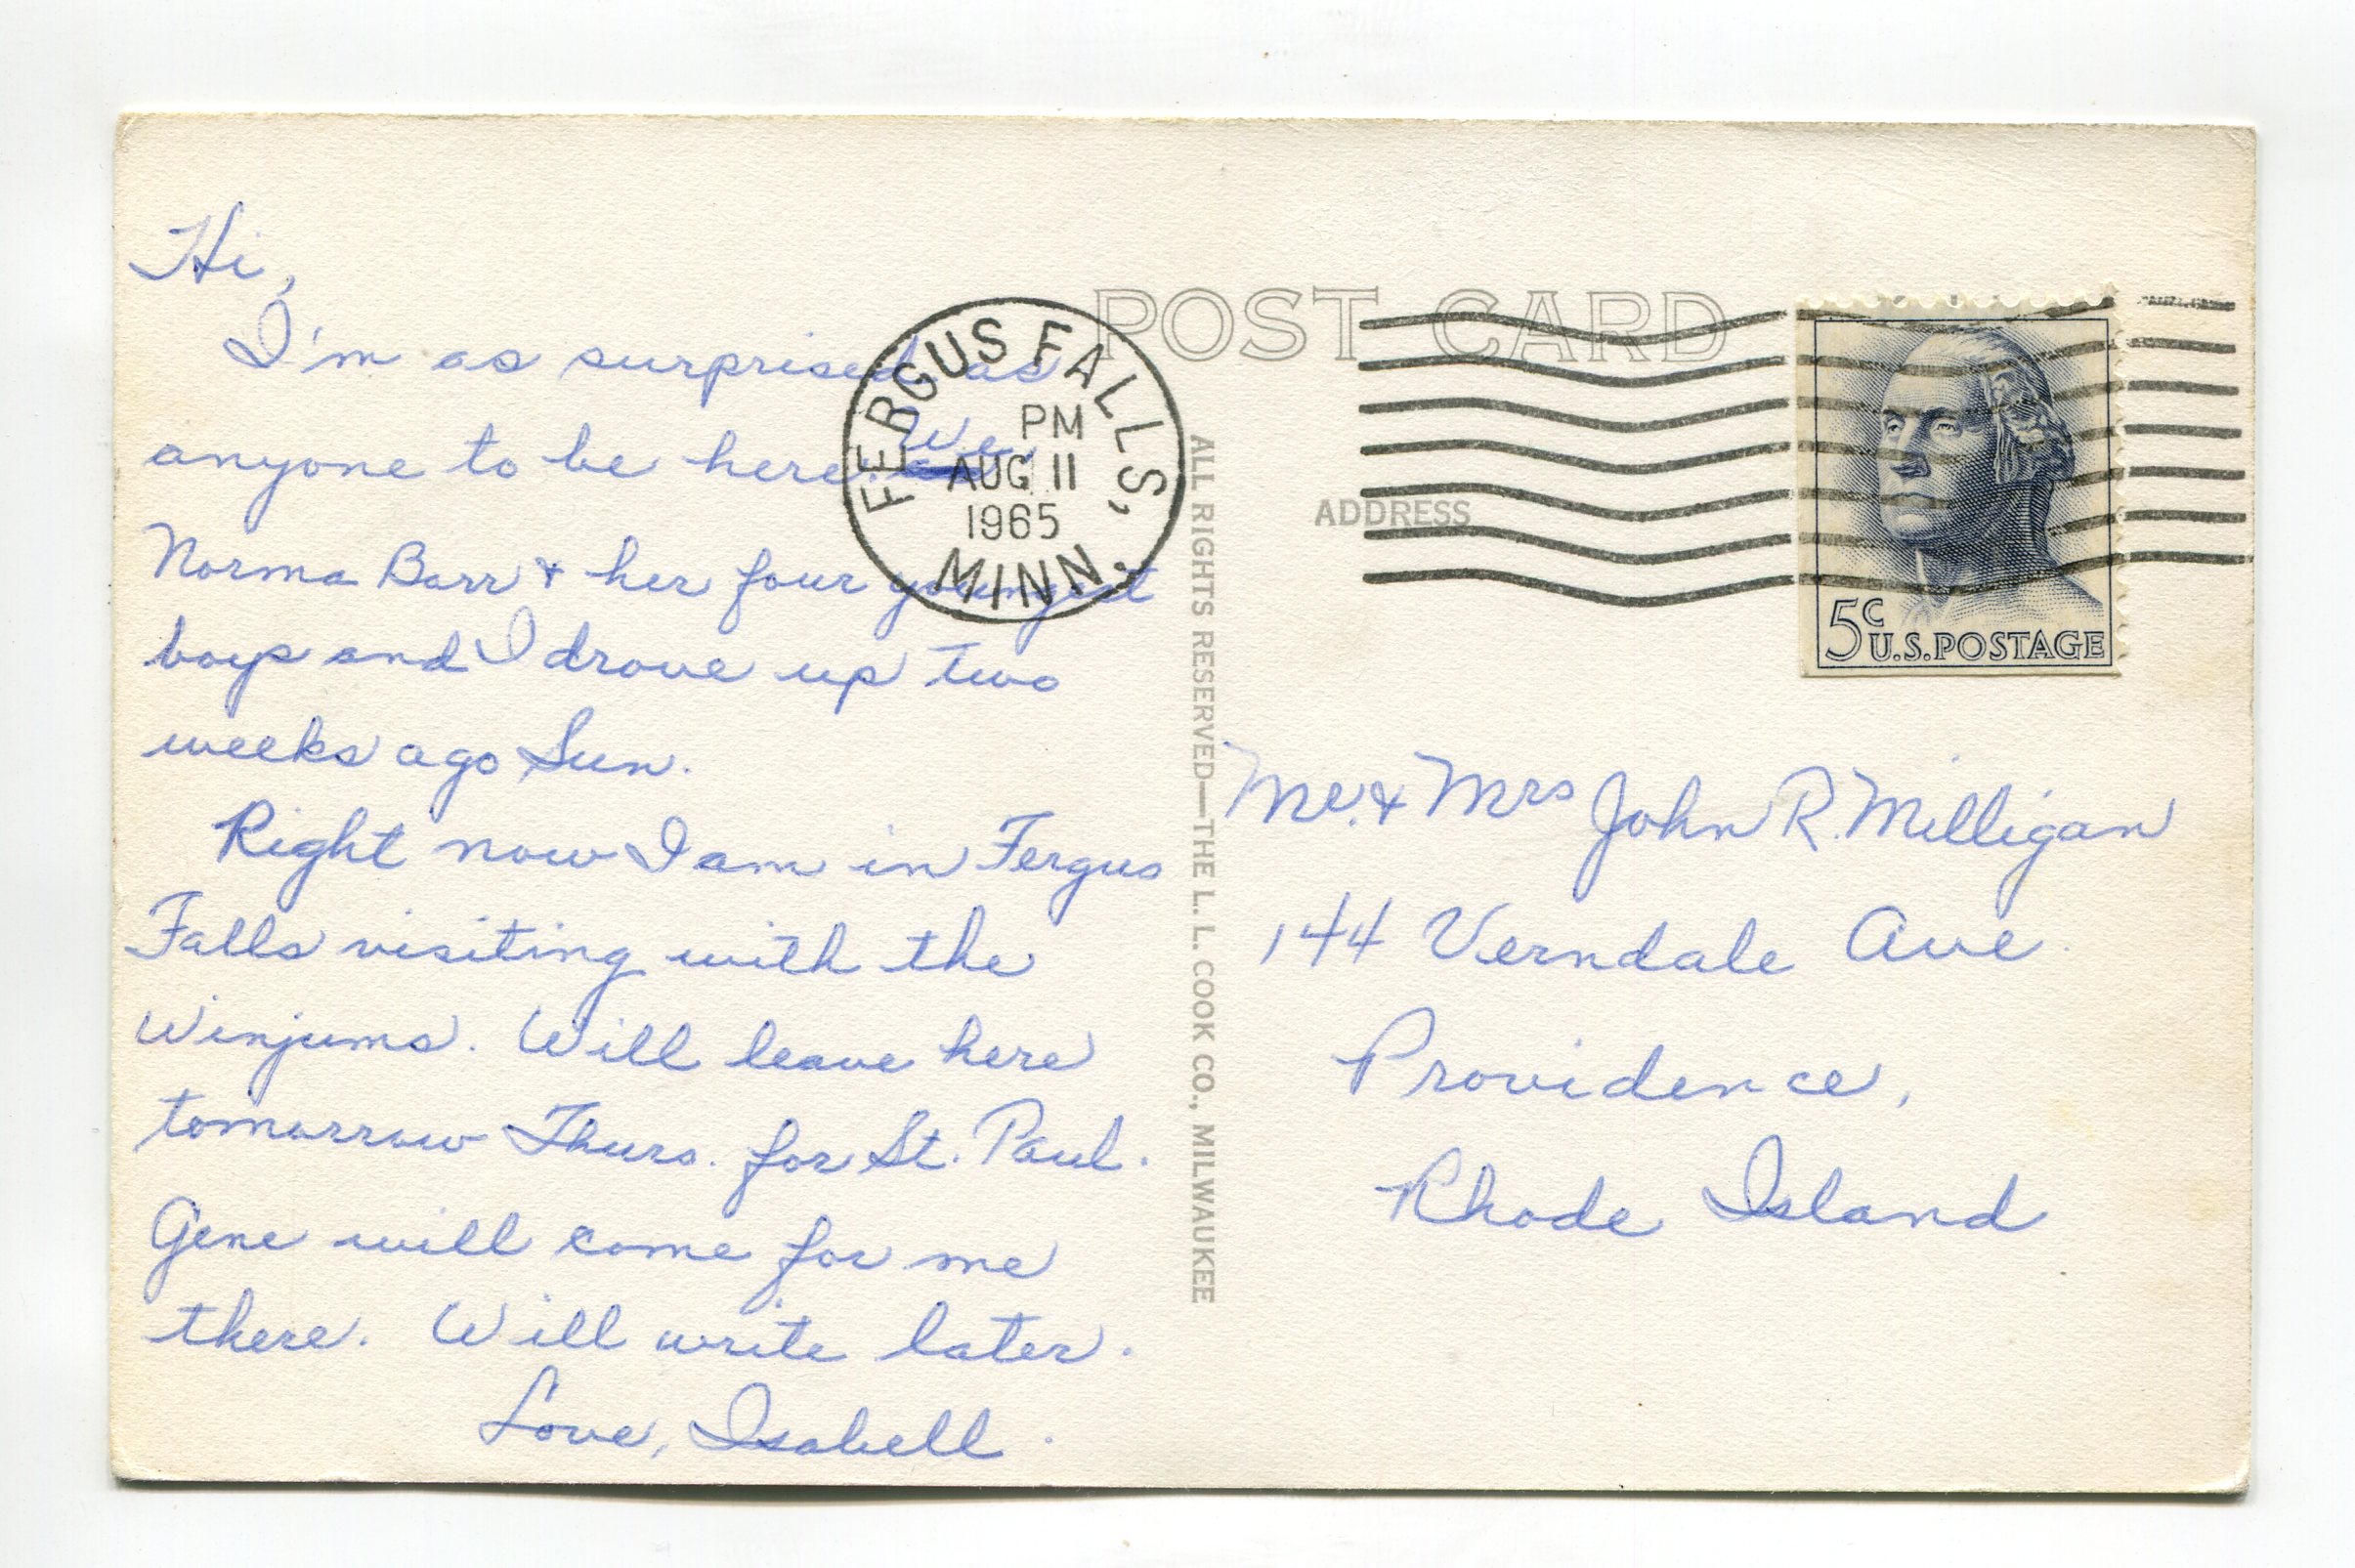 Hi,
I'm as surprised as
anyone to be here. We,
Norma Barr & her four youngest
boys and I drove up two
weeks ago Sun.
Right now I am in Fergus
Falls visiting with the
Winjums. Will leave here
tomorrow Thurs. for St. Paul.
Gene will come for me
there. Will write later.
Love, Isabell.
FERGUS FALLS,
PM
AUG 11
1965
MINN.
POST CARD
ADDRESS
5c
U.S. POSTAGE
ALL RIGHTS RESERVED—THE L. L. COOK CO., MILWAUKEE
Mr. & Mrs John R. Milligan
144 Verndale Ave.
Providence,
Rhode Island